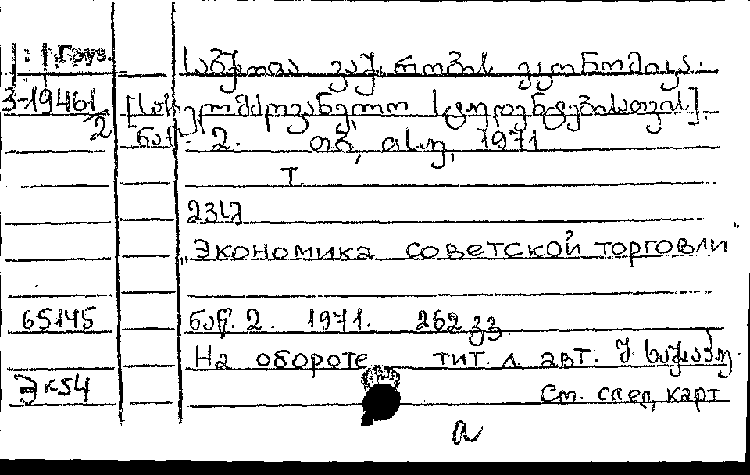 Груз.
საბჭოთა ვაჭრობის ეკონომიკა.
3-19461/2 [სახელმძღვანელო სტუდენტებისათვის].
ნაწ. 2. თბ., თსუ, 1971
Т
231ა
„Экономика советской торговли"
65145 ნაწ. 2. 1971. 262 გვ
На обороте тит. л. авт.
ЭК54 См. след. карт
а